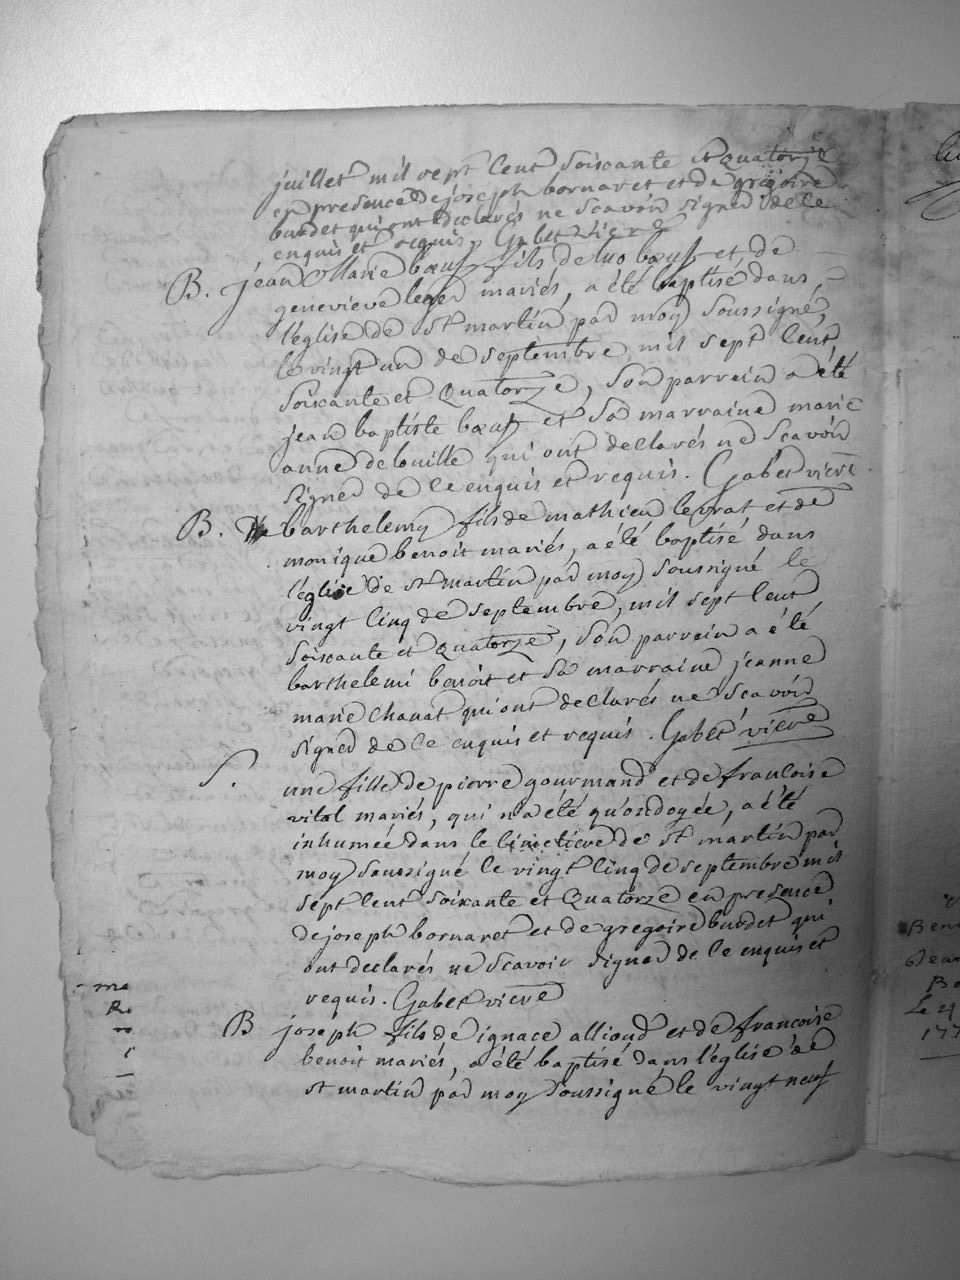 juillet mil sept cent soixante et quatorze
en presence de joseph bornaret et de gregoire
burdet qui ont declarés ne scavoir signer de ce
enquis et requis. Gabet vicre
B. jean Marie bœuf fils de luc bœuf et de
genevieve leger mariés, a été baptisé dans
l'église de st martin par moy soussigné,
le vingt un de septembre mil sept cent
soixante et quatorze, son parrain a été
jean baptiste bœuf et sa marraine marie
anne delouille qui ont declarés ne scavoir
signer de ce enquis et requis. Gabet vicre
B. barthelemy fils de mathieu levrat et de
monique benoit mariés, a été baptisé dans
l'église de st martin par moy soussigné le
vingt cinq de septembre, mil sept cent
soixante et quatorze, son parrain a été
barthelemi benoit et sa marraine jeanne
marie chavat qui ont declarés ne scavoir
signer de ce enquis et requis. Gabet vicre
S. une fille de pierre gourmand et de francoise
vital mariés, qui n'a été qu'ondoyée, a été
inhumée dans le cimetiere de st martin par
moy soussigné le vingt cinq de septembre mil
sept cent soixante et quatorze en presence
de joseph bornaret et de gregoire burdet qui
ont declarés ne scavoir signer de ce enquis et
requis. Gabet vicre
B joseph fils de ignace alliod et de francoise
benoit mariés, a été baptisé dans l'église de
st martin par moy soussigné le vingt neuf